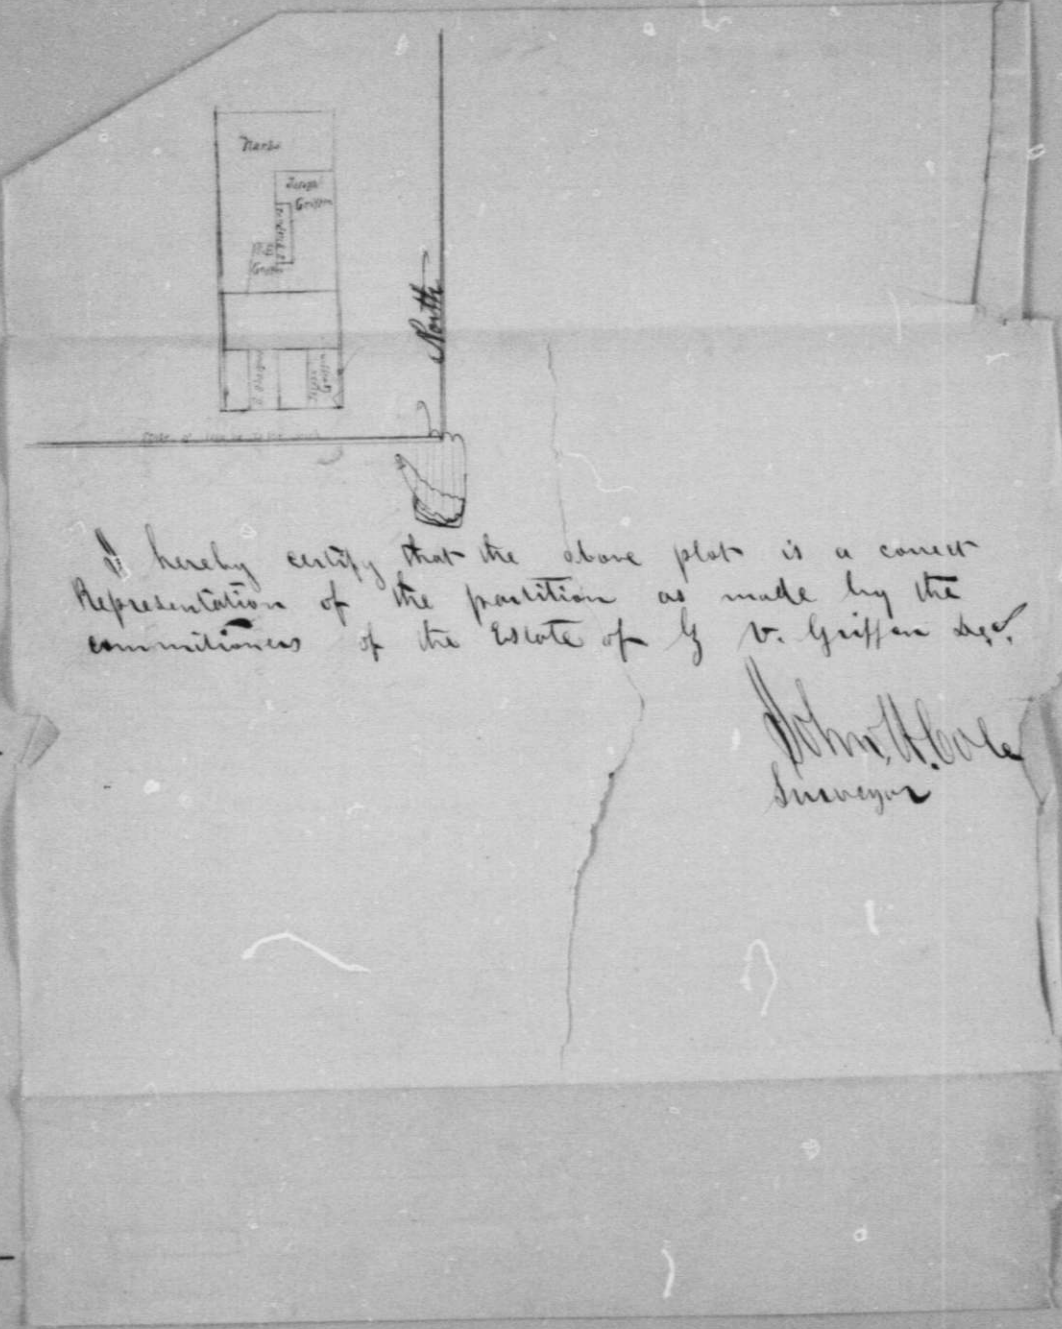 Joseph
Griffin
Griffin
North
I hereby certify that the above plat is a correct
Representation of the partition as made by the
commitioners of the Estate of G V. Griffin Decd.
John H. Cole
Surveyor